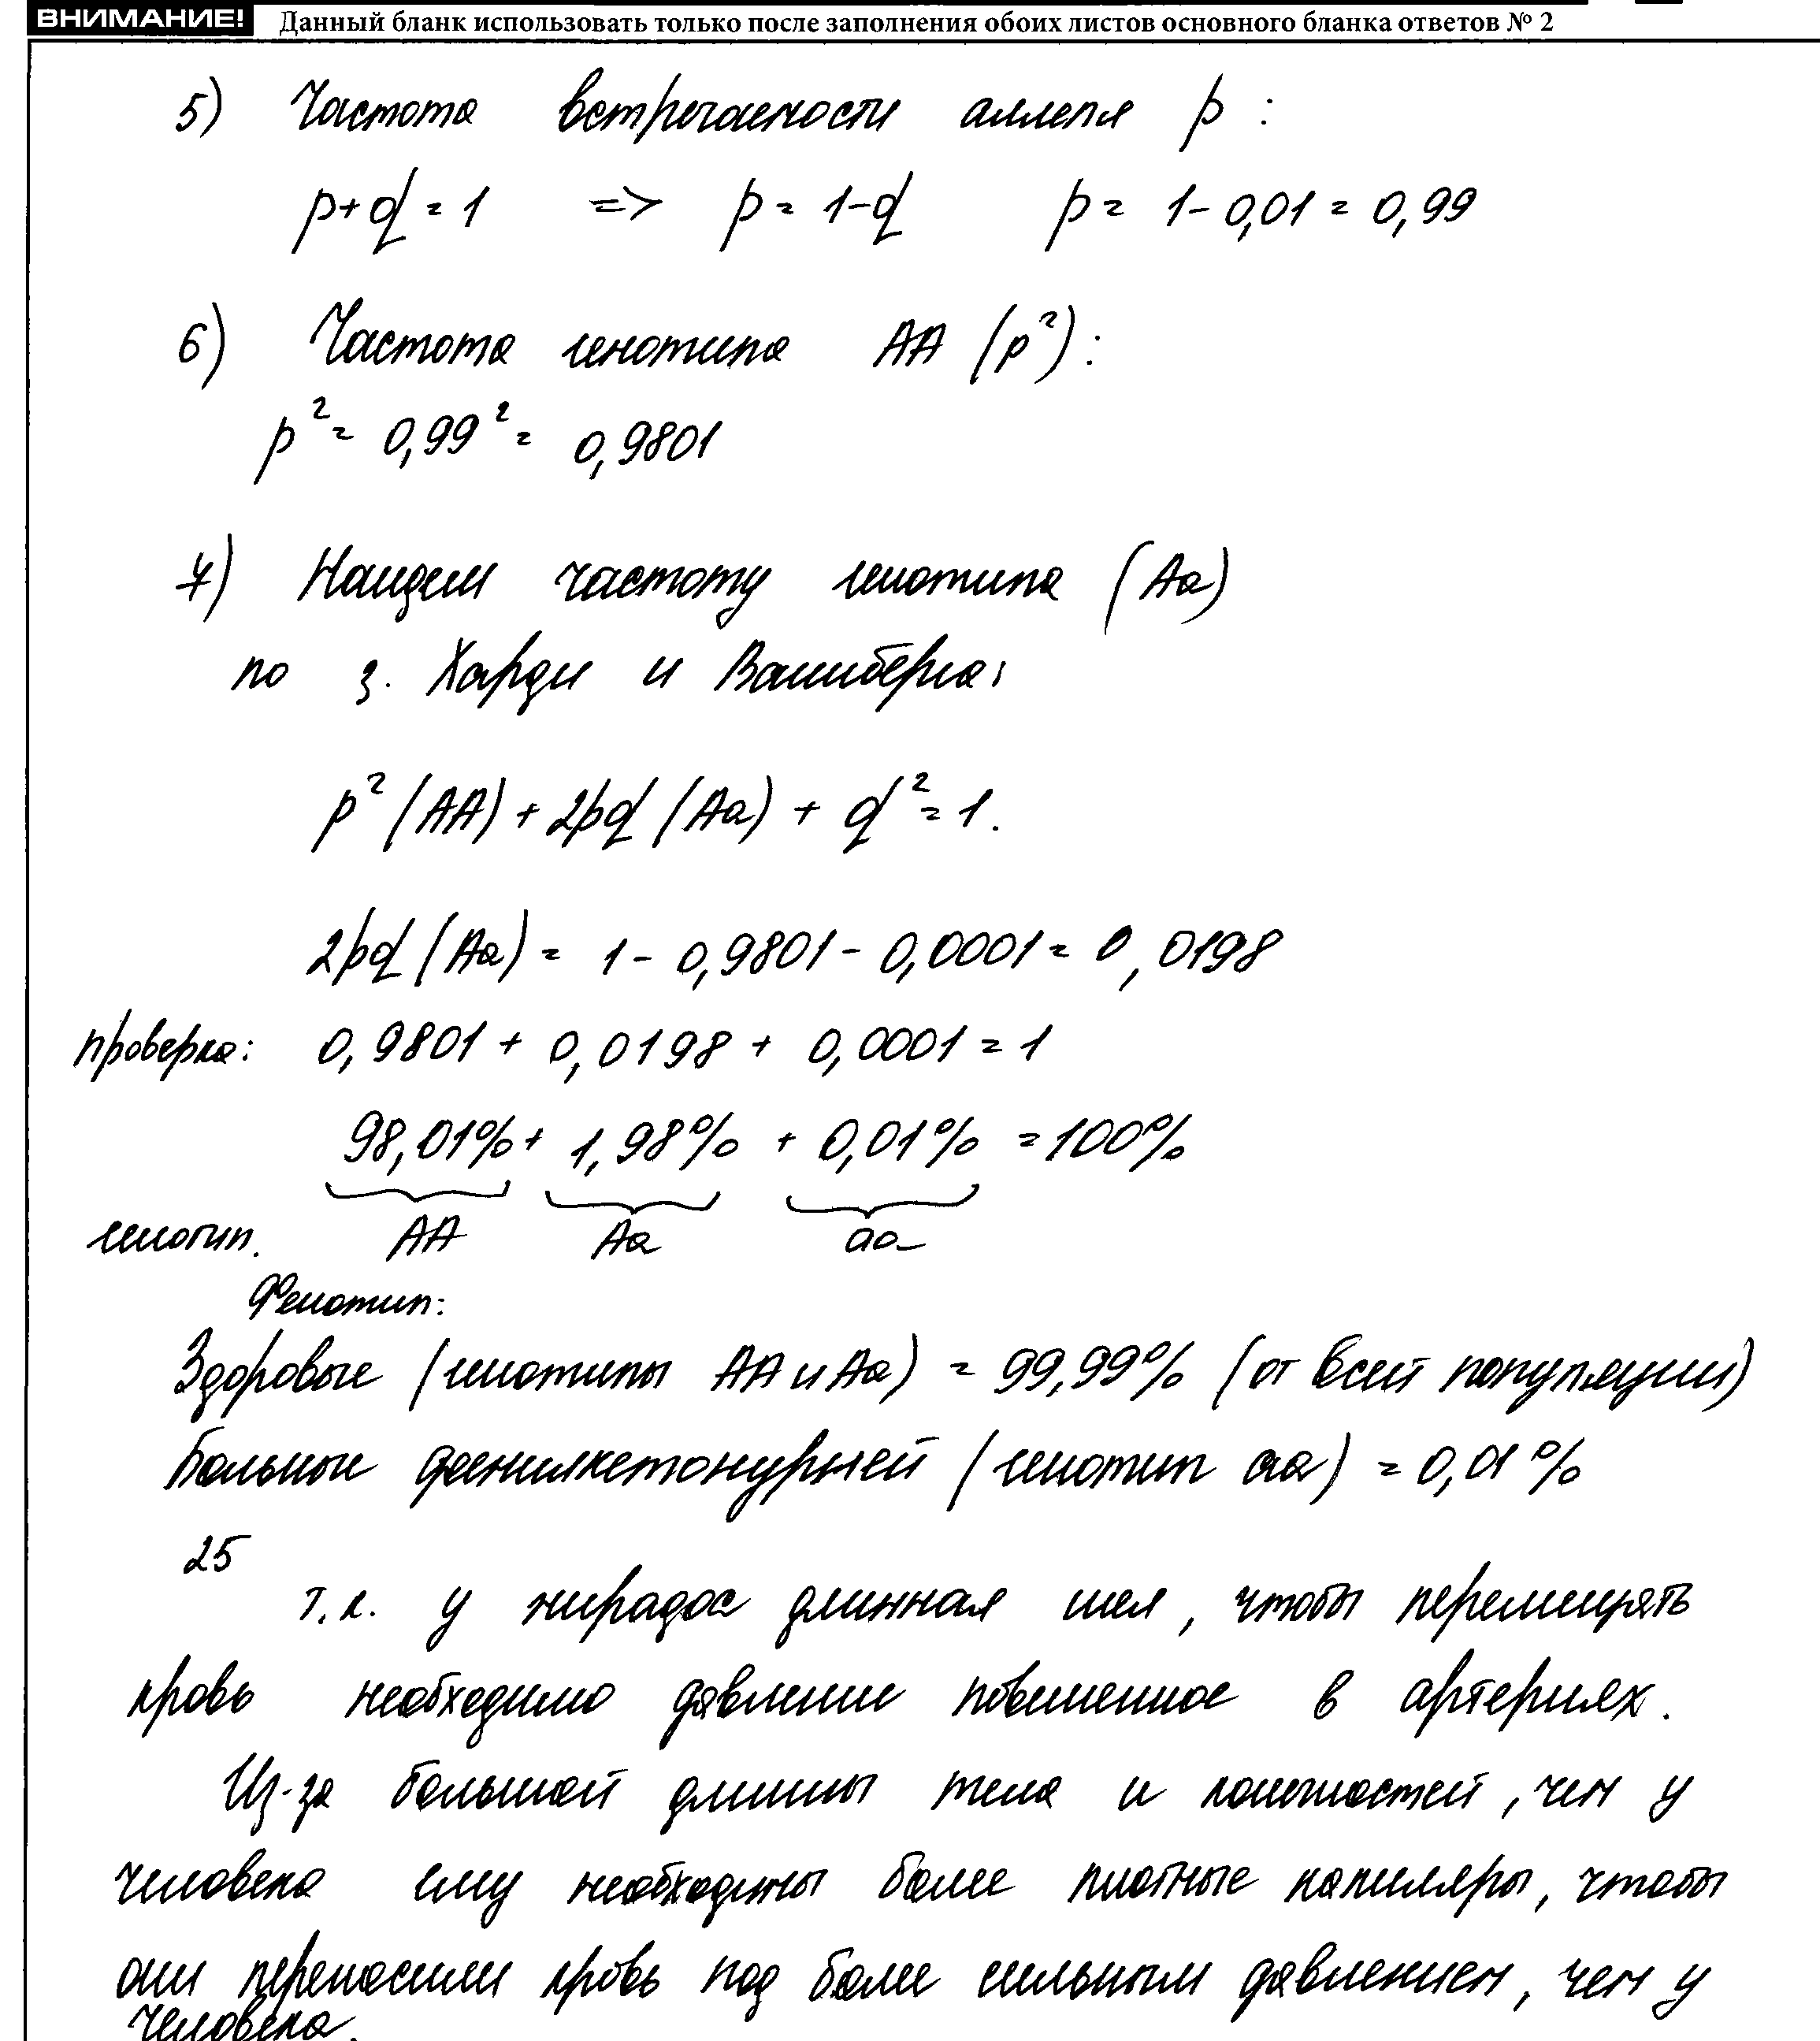 ВНИМАНИЕ! Данный бланк использовать только после заполнения обоих листов основного бланка ответов № 2
5) Частота встречаемости аллеля p :
p+q=1 => p=1-q p= 1-0,01=0,99
6) Частота генотипа AA (p²):
p²= 0,99²= 0,9801
7) Найдем частоту генотипа (Aa)
по з. Харди и Вайнберга:
p²(AA)+2pq(Aa)+q²=1.
2pq(Aa)= 1-0,9801-0,0001=0,0198
проверка: 0,9801+0,0198+0,0001=1
98,01%+1,98%+0,01%=100%
генотип. AA Aa aa
Фенотип:
Здоровые (генотипы AA и Aa) = 99,99% (от всей популяции)
Больные фенилкетонурией (генотип aa) = 0,01%
25
т.к. у жирафов длинная шея, чтобы перемещать
кровь необходимо давление повышенное в артериях.
Из-за большой длины тела и конечностей, чем у
человека ему необходимы более плотные капилляры, чтобы
они переносили кровь под более сильным давлением, чем у
человека.